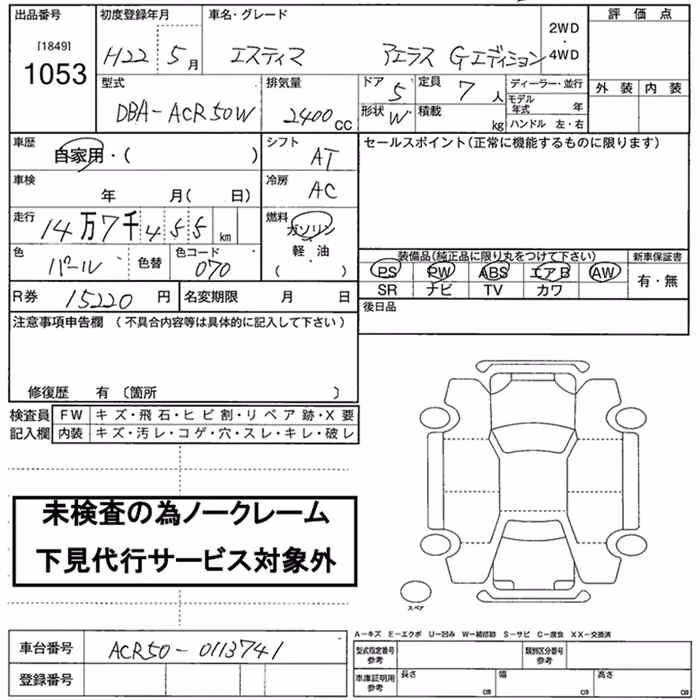 出品番号 初度登録年月 車名・グレード 評価点
[1849] 1053 H22 5月 エスティマ アエラス Gエディション 2WD・4WD
型式 排気量 ドア 定員 ディーラー・並行 外装 内装
DBA-ACR50W 2400CC 5 7人 モデル年式 年
形状 W 積載 kg ハンドル 左・右
車歴 シフト セールスポイント(正常に機能するものに限ります)
自家用・( ) AT
車検 年 月( 日) 冷房 AC
走行 14万7千455km 燃料 ガソリン・軽油( )
色 パール 色替 色コード 070
装備品(純正品に限り丸をつけて下さい) 新車保証書
PS PW ABS エアB AW 有・無
SR ナビ TV カワ
R券 15220円 名変期限 月 日 後日品
注意事項申告欄 (不具合内容等は具体的に記入して下さい)
修復歴 有 〔箇所 )
検査員記入欄 FW キズ・飛石・ヒビ割・リペア跡・X要
内装 キズ・汚レ・コゲ・穴・スレ・キレ・破レ
未検査の為ノークレーム
下見代行サービス対象外
スペア
A-キズ E-エクボ U-凹み W-補修跡 S-サビ C-腐食 XX-交換済
車台番号 ACR50-0113741 型式指定番号参考 類別区分番号参考
登録番号 車庫証明用参考 長さ cm 幅 cm 高さ cm